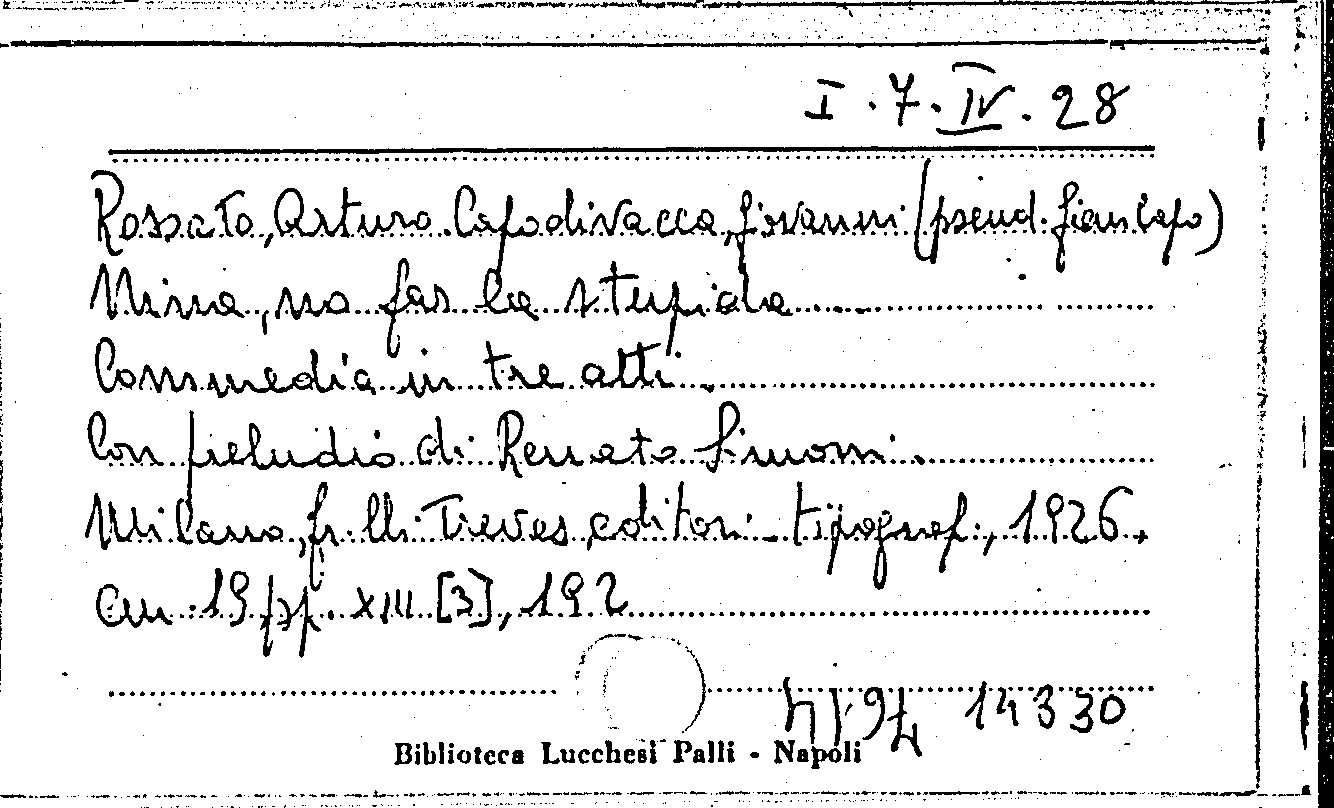 I.7.IV.28
Rossato, Arturo. Capodivacca, Giovanni (pseud. Giancapo)
Nina, no far la stupida
Commedia in tre atti.
Con preludio di Renato Simoni.
Milano, fr.lli Treves, editori - tipograf., 1926.
cm. 19 pp. XIII [3], 192
14330
Biblioteca Lucchesi Palli - Napoli